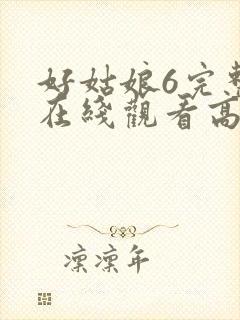 好姑娘6完整
在线观看高
凛凛年